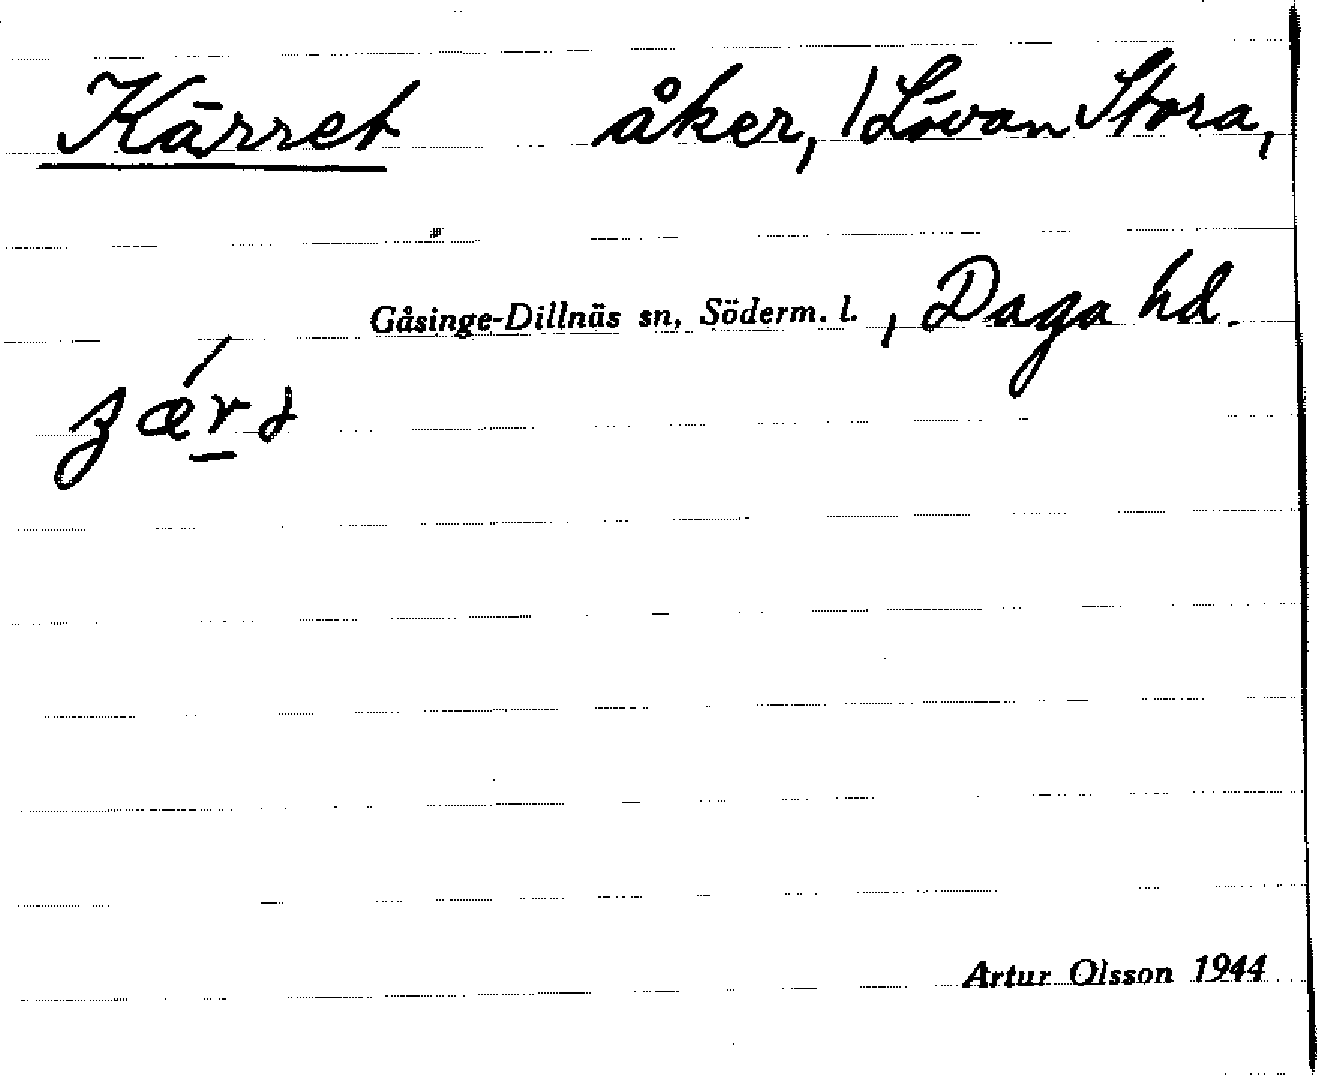 Kärret åker, /Lövan Stora,
Gåsinge-Dillnäs sn, Söderm. l. , Daga hd.
Artur Olsson 1944